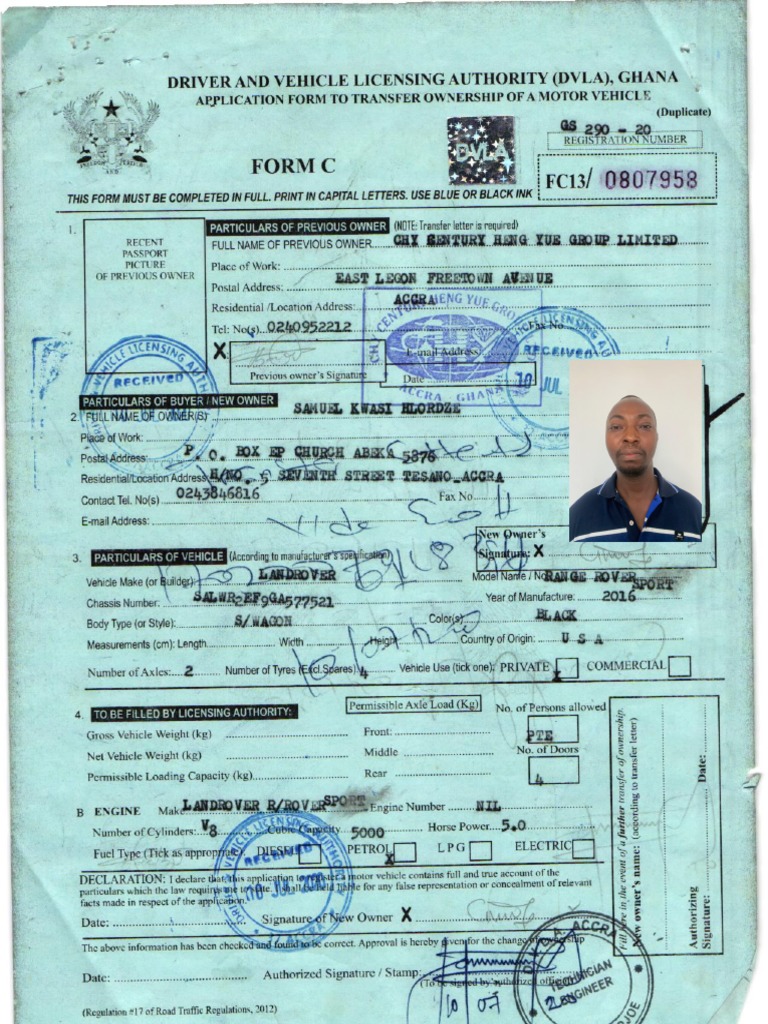 DRIVER AND VEHICLE LICENSING AUTHORITY (DVLA), GHANA
APPLICATION FORM TO TRANSFER OWNERSHIP OF A MOTOR VEHICLE
(Duplicate)
GS 290 - 20
REGISTRATION NUMBER
DVLA
FORM C
FC13/ 0807958
THIS FORM MUST BE COMPLETED IN FULL. PRINT IN CAPITAL LETTERS. USE BLUE OR BLACK INK
1. PARTICULARS OF PREVIOUS OWNER (NOTE: Transfer letter is required)
RECENT
PASSPORT
PICTURE
OF PREVIOUS OWNER
FULL NAME OF PREVIOUS OWNER CHY CENTURY HENG YUE GROUP LIMITED
Place of Work:
Postal Address: EAST LEGON FREETOWN AVENUE
Residential /Location Address: ACCRA
Tel: No(s). 0240952212 Fax No
X E-mail Address:
Previous owner's Signature Date
RECEIVED
10 JUL
ACCRA - GHANA
VEHICLE LICENSING
RECEIVED
2. PARTICULARS OF BUYER / NEW OWNER
FULL NAME OF OWNER(S) SAMUEL KWASI HLORDZE
Place of Work:
Postal Address: P. O. BOX EP CHURCH ABEKA 5876
Residential/Location Address H/NO. 5 SEVENTH STREET TESANO_ACCRA
Contact Tel. No(s) 0243846816 Fax No
E-mail Address:
New Owner's
Signature: X
3. PARTICULARS OF VEHICLE (According to manufacturer's specification)
Vehicle Make (or Builder) LANDROVER Model Name / No RANGE ROVER SPORT
Chassis Number: SALWR2EF9GA577521 Year of Manufacture: 2016
Body Type (or Style): S/WAGON Color(s) BLACK
Measurements (cm): Length Width Height Country of Origin: U S A
Number of Axles: 2 Number of Tyres (Excl.Spares) 4 Vehicle Use (tick one): PRIVATE x COMMERCIAL
4. TO BE FILLED BY LICENSING AUTHORITY: Permissible Axle Load (Kg) No. of Persons allowed
Gross Vehicle Weight (kg) Front: PTE
Net Vehicle Weight (kg) Middle No. of Doors
Permissible Loading Capacity (kg) Rear 4
B ENGINE Make LANDROVER R/ROVER SPORT Engine Number NIL
Number of Cylinders: V8 Cubic Capacity 5000 Horse Power 5.0
Fuel Type (Tick as appropriate) DIESEL PETROL x L P G ELECTRIC
DECLARATION: I declare that this application to register a motor vehicle contains full and true account of the
particulars which the law requires me to state. I shall be held liable for any false representation or concealment of relevant
facts made in respect of the application.
Date: Signature of New Owner X
The above information has been checked and found to be correct. Approval is hereby given for the change of ownership
Date: Authorized Signature / Stamp:
(To be signed by authorized officer)
(Regulation #17 of Road Traffic Regulations, 2012)
Fill here in the event of a further transfer of ownership.
New owner's name: (according to transfer letter)
Authorizing
Signature: Date:
RECEIVED
10 JUL
ACCRA
TECHNICIAN
ENGINEER